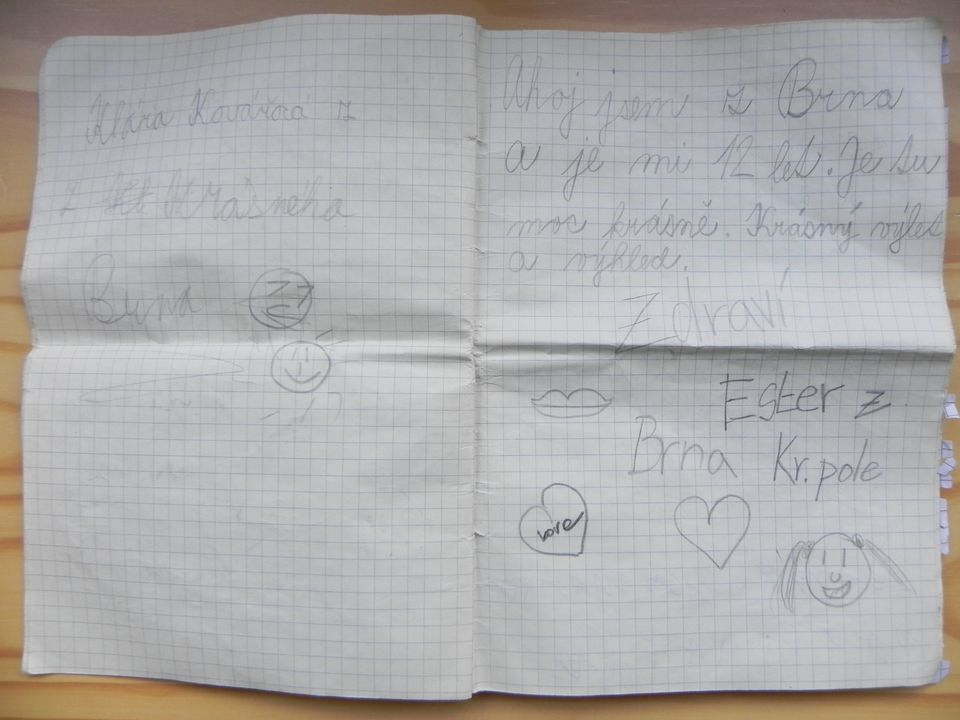 Klára Kovářová z
z Krásného
Brna
Ahoj jsem z Brna
a je mi 12 let. Je tu
moc krásně. Krásný výlet
a výhled.
Zdraví
Ester z
Brna Kr. pole
Love